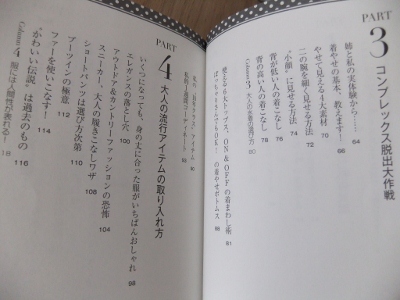 PART
3 コンプレックス脱出大作戦
姉と私の実体験から…… 64
着やせの基本、教えます! 66
やせて見える4大素材 70
二の腕を細く見せる方法 72
"小顔"に見せる方法 74
背が低い人の着こなし 76
背の高い人の着こなし 78
Column 3 大人の水着の選び方 80
使える6大トップス、ON&OFFの着まわし術 81
ぽっちゃりさんでもOK! の着やせボトムス 88
PART
4 大人の流行アイテムの取り入れ方
いくつになっても、身の丈に合った服がいちばんおしゃれ 96
エレガンスの落とし穴
アウトドア&カントリーファッションの恐怖
スニーカー、大人の履きこなしワザ 104
ショートパンツは選び方次第 108
ブーツインの極意 112
ファーを使いこなす! 114
"かわいい伝説"は過去のもの 116
Column 4 服には人間性が表れる! 118